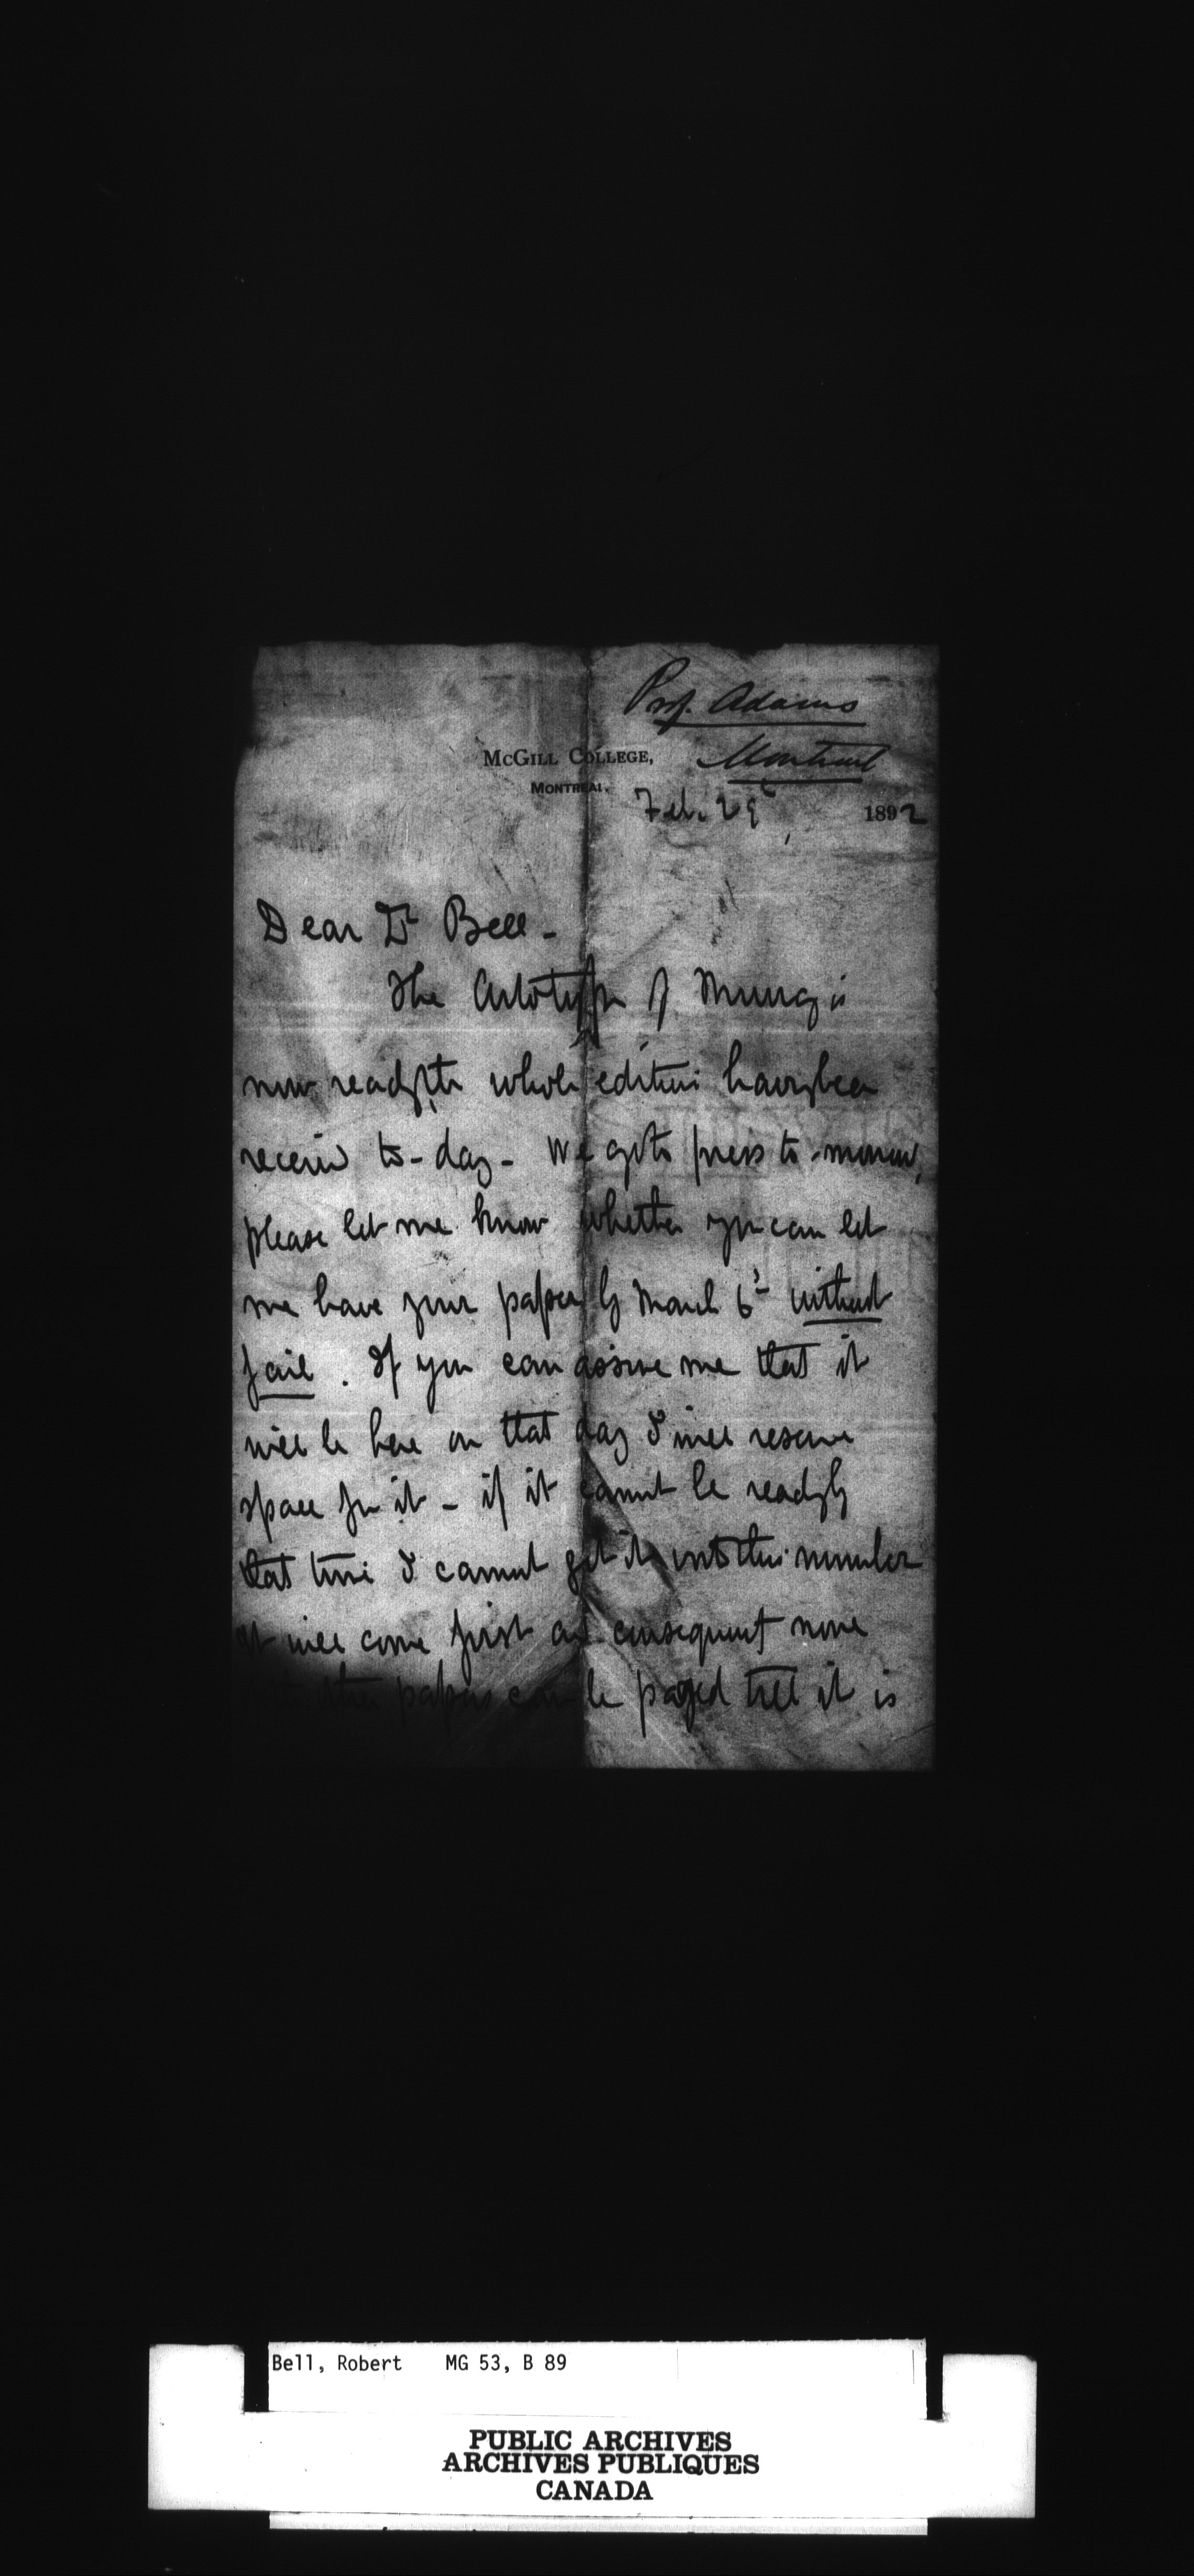 Prof. Adams
McGill College,
Montreal
Montreal.
Feb. 29t, 1892
Dear Dr Bell -
The Artotype of Murray is
now ready, the whole edition having been
received to-day - We go to press to-morrow,
please let me know whether you can let
me have your paper by March 6th without
fail. If you can assure me that it
will be here on that day I will reserve
space for it - if it cannot be ready by
that time I cannot get it into this number
It will come first and consequent none
other papers can be paged till it is
Bell, Robert MG 53, B 89
PUBLIC ARCHIVES
ARCHIVES PUBLIQUES
CANADA